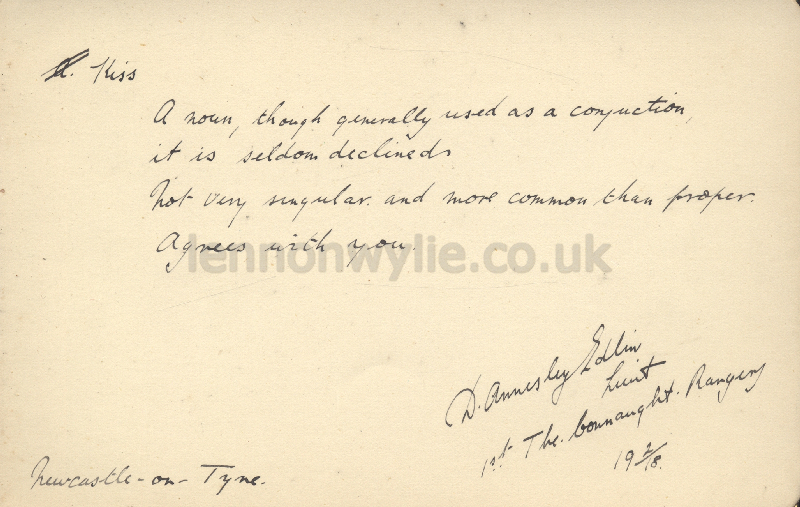 A. Kiss
A noun, though generally used as a conjuction,
it is seldom declined.
Not very singular. and more common than proper.
Agrees with you.
lennonwylie.co.uk
D. Annesley Edlin
Lieut
1st The. Connaught. Rangers
19 2/18.
Newcastle-on-Tyne.